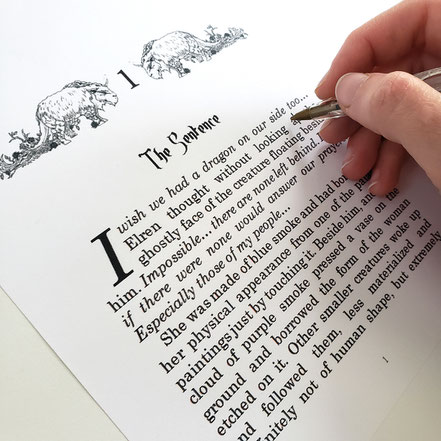 1
The Sentence
I wish we had a dragon on our side too...
Elren thought without looking
ghostly face of the creature floating
him. Impossible... there are none left behind.
if there were none would answer our
Especially those of my people...
She was made of blue smoke and had
her physical appearance from one of the
paintings just by touching it. Beside him,
cloud of purple smoke pressed a vase on the
ground and borrowed the form of the woman
etched on it. Other smaller creatures woke up
and followed them, less materialized and
not of human shape, but extremely
1